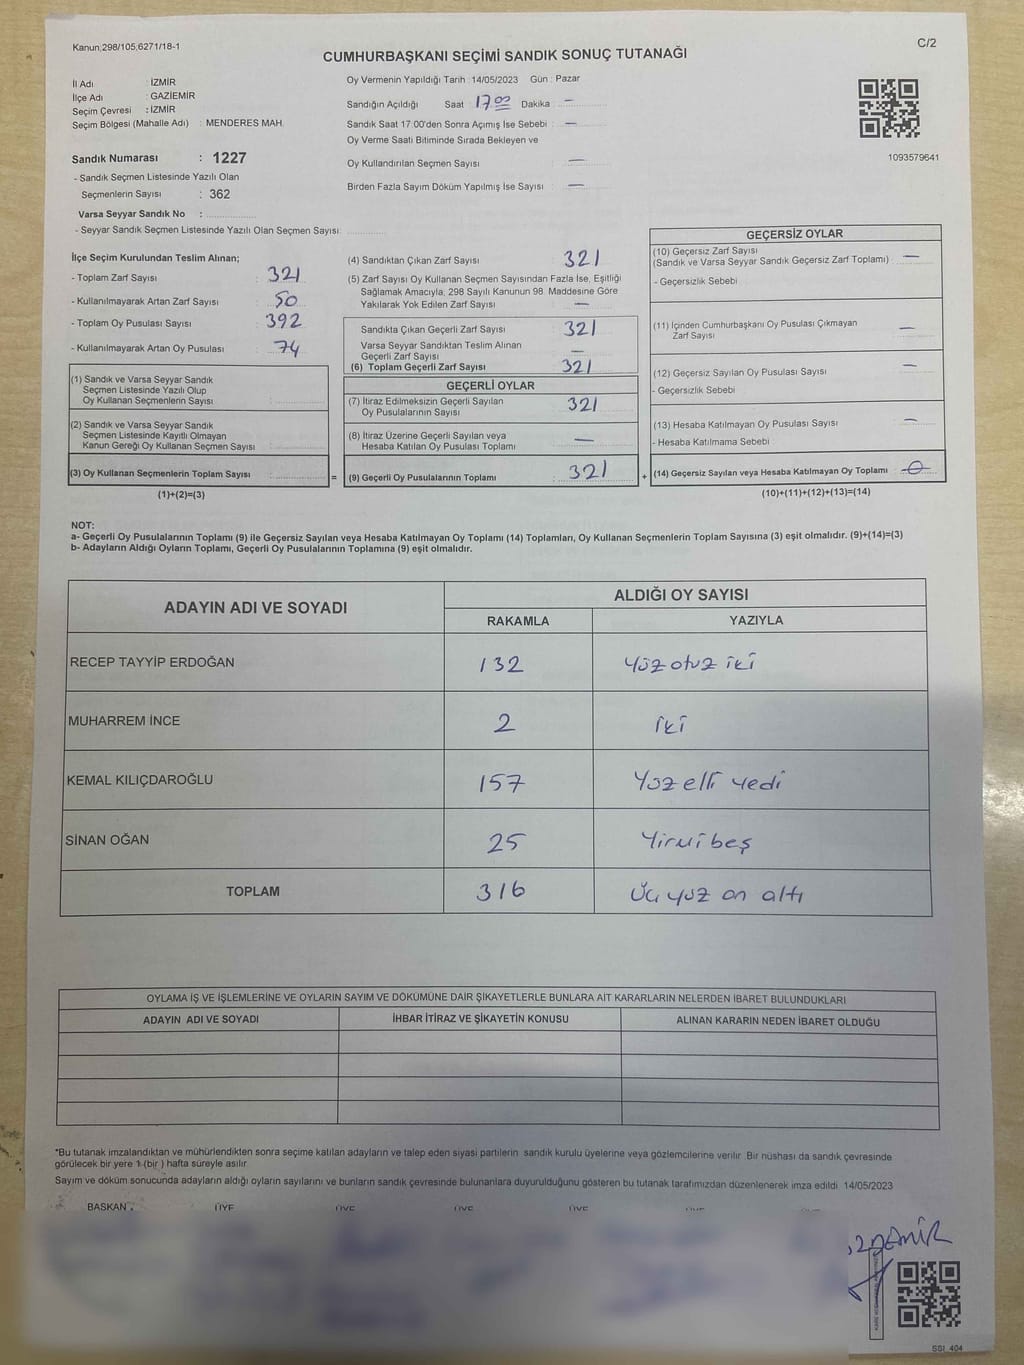 Kanun;298/105;6271/18-1
C/2
CUMHURBAŞKANI SEÇİMİ SANDIK SONUÇ TUTANAĞI
İl Adı : İZMİR
İlçe Adı : GAZİEMİR
Seçim Çevresi : İZMİR
Seçim Bölgesi (Mahalle Adı) : MENDERES MAH.
Oy Vermenin Yapıldığı Tarih : 14/05/2023 Gün : Pazar
Sandığın Açıldığı Saat 17 00 Dakika : —
Sandık Saat 17:00'den Sonra Açımış İse Sebebi : —
Oy Verme Saati Bitiminde Sırada Bekleyen ve
Oy Kullandırılan Seçmen Sayısı —
Birden Fazla Sayım Döküm Yapılmış İse Sayısı : —
1093579641
Sandık Numarası : 1227
- Sandık Seçmen Listesinde Yazılı Olan
Seçmenlerin Sayısı : 362
Varsa Seyyar Sandık No :
- Seyyar Sandık Seçmen Listesinde Yazılı Olan Seçmen Sayısı:
İlçe Seçim Kurulundan Teslim Alınan;
- Toplam Zarf Sayısı : 321
- Kullanılmayarak Artan Zarf Sayısı : 50
- Toplam Oy Pusulası Sayısı : 392
- Kullanılmayarak Artan Oy Pusulası : 74
(1) Sandık ve Varsa Seyyar Sandık
Seçmen Listesinde Yazılı Olup
Oy Kullanan Seçmenlerin Sayısı :
(2) Sandık ve Varsa Seyyar Sandık
Seçmen Listesinde Kayıtlı Olmayan
Kanun Gereği Oy Kullanan Seçmen Sayısı :
(3) Oy Kullanan Seçmenlerin Toplam Sayısı :
(1)+(2)=(3)
(4) Sandıktan Çıkan Zarf Sayısı : 321
(5) Zarf Sayısı Oy Kullanan Seçmen Sayısından Fazla İse, Eşitliği
Sağlamak Amacıyla; 298 Sayılı Kanunun 98. Maddesine Göre
Yakılarak Yok Edilen Zarf Sayısı : —
Sandıkta Çıkan Geçerli Zarf Sayısı : 321
Varsa Seyyar Sandıktan Teslim Alınan
Geçerli Zarf Sayısı : —
(6) Toplam Geçerli Zarf Sayısı : 321
GEÇERLİ OYLAR
(7) İtiraz Edilmeksizin Geçerli Sayılan
Oy Pusulalarının Sayısı : 321
(8) İtiraz Üzerine Geçerli Sayılan veya
Hesaba Katılan Oy Pusulası Toplamı : —
= (9) Geçerli Oy Pusulalarının Toplamı : 321 +
GEÇERSİZ OYLAR
(10) Geçersiz Zarf Sayısı
(Sandık ve Varsa Seyyar Sandık Geçersiz Zarf Toplamı) : —
- Geçersizlik Sebebi :
(11) İçinden Cumhurbaşkanı Oy Pusulası Çıkmayan
Zarf Sayısı : —
(12) Geçersiz Sayılan Oy Pusulası Sayısı : —
- Geçersizlik Sebebi :
(13) Hesaba Katılmayan Oy Pusulası Sayısı : —
- Hesaba Katılmama Sebebi :
(14) Geçersiz Sayılan veya Hesaba Katılmayan Oy Toplamı : 0
(10)+(11)+(12)+(13)=(14)
NOT:
a- Geçerli Oy Pusulalarının Toplamı (9) ile Geçersiz Sayılan veya Hesaba Katılmayan Oy Toplamı (14) Toplamları, Oy Kullanan Seçmenlerin Toplam Sayısına (3) eşit olmalıdır. (9)+(14)=(3)
b- Adayların Aldığı Oyların Toplamı, Geçerli Oy Pusulalarının Toplamına (9) eşit olmalıdır.
ADAYIN ADI VE SOYADI ALDIĞI OY SAYISI
RAKAMLA YAZIYLA
RECEP TAYYİP ERDOĞAN 132 Yüz otuz iki
MUHARREM İNCE 2 iki
KEMAL KILIÇDAROĞLU 157 Yüz elli yedi
SİNAN OĞAN 25 Yirmi beş
TOPLAM 316 Üç yüz on altı
OYLAMA İŞ VE İŞLEMLERİNE VE OYLARIN SAYIM VE DÖKÜMÜNE DAİR ŞİKAYETLERLE BUNLARA AİT KARARLARIN NELERDEN İBARET BULUNDUKLARI
ADAYIN ADI VE SOYADI İHBAR İTİRAZ VE ŞİKAYETİN KONUSU ALINAN KARARIN NEDEN İBARET OLDUĞU
*Bu tutanak imzalandıktan ve mühürlendikten sonra seçime katılan adayların ve talep eden siyasi partilerin sandık kurulu üyelerine veya gözlemcilerine verilir. Bir nüshası da sandık çevresinde
görülecek bir yere 1 (bir ) hafta süreyle asılır.
Sayım ve döküm sonucunda adayların aldığı oyların sayılarını ve bunların sandık çevresinde bulunanlara duyurulduğunu gösteren bu tutanak tarafımızdan düzenlenerek imza edildi. 14/05/2023
BAŞKAN ÜYE ÜYE ÜYE ÜYE